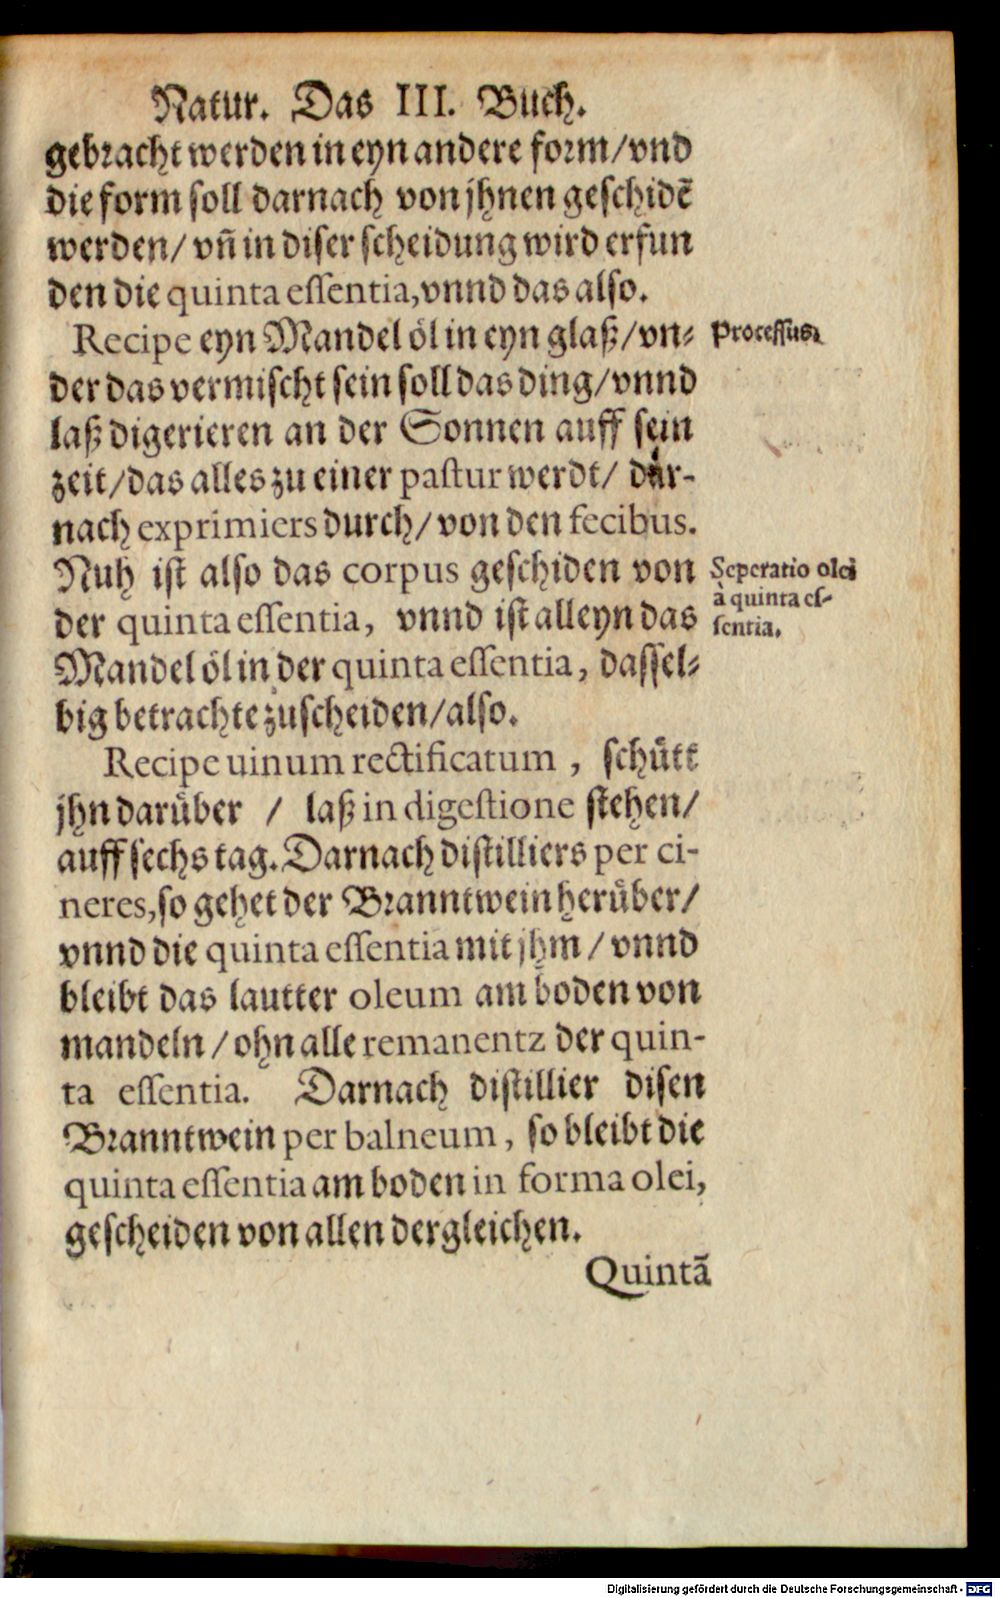 Natur. Das III. Buch.
gebracht werden in eyn andere form/vnd
die form soll darnach von jhnen geschidē
werden/ vñ in diser scheidung wird erfun
den die quinta essentia, vnnd das also.
Recipe eyn Mandel oͤl in eyn glaß/vn⸗
Processus.
der das vermischt sein soll das ding/vnnd
laß digerieren an der Sonnen auff sein
zeit/das alles zu einer pastur werdt/ dar-
nach exprimiers durch/ von den fecibus.
Nuh ist also das corpus geschiden von
Seperatio olei
à quinta es-
sentia.
der quinta essentia, vnnd ist alleyn das
Mandel oͤl in der quinta essentia, dassel⸗
big betrachte zuscheiden/also.
Recipe uinum rectificatum , schuͤtt
jhn daruͤber / laß in digestione stehen/
auff sechs tag. Darnach distilliers per ci-
neres, so gehet der Branntwein heruͤber/
vnnd die quinta essentia mit jhm/ vnnd
bleibt das lautter oleum am boden von
mandeln/ohn alle remanentz der quin-
ta essentia. Darnach distillier disen
Branntwein per balneum, so bleibt die
quinta essentia am boden in forma olei,
gescheiden von allen dergleichen.
Quintā
Digitalisierung gefördert durch die Deutsche Forschungsgemeinschaft - DFG